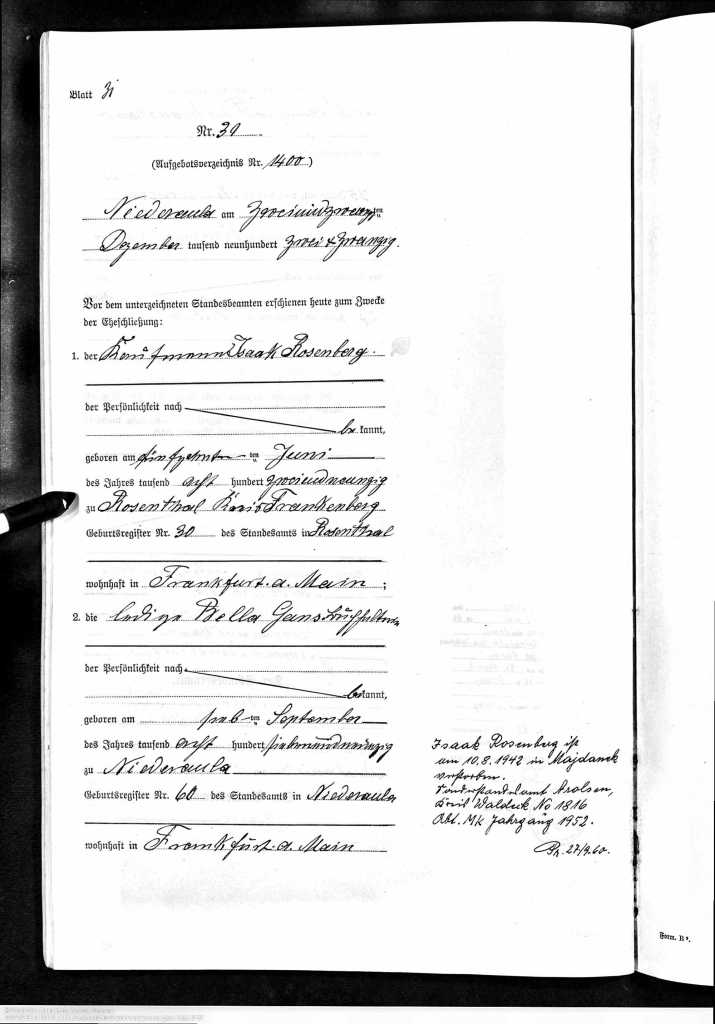 Blatt 31
Nr. 31
(Aufgebotsverzeichnis Nr. 1400)
Niederaula am zweiundzwanzigten
Dezember tausend neunhundert zwei & zwanzig.
Vor dem unterzeichneten Standesbeamten erschienen heute zum Zwecke
der Eheschließung:
1. der Kaufmann Isaak Rosenberg.
der Persönlichkeit nach
be kannt,
geboren am fünfzehnten Juni
des Jahres tausend acht hundert zweiundneunzig
zu Rosenthal Kreis Frankenberg
Geburtsregister Nr. 30 des Standesamts in Rosenthal
wohnhaft in Frankfurt a. Main ;
2. die ledige Bella Gans
der Persönlichkeit nach
bekannt,
geboren am ten September
des Jahres tausend acht hundert siebenundneunzig
zu Niederaula
Geburtsregister Nr. 60 des Standesamts in Niederaula
wohnhaft in Frankfurt a. Main
Isaak Rosenberg ist
am 10.8.1942 in Majdanek
verstorben.
Sonderstandesamt Arolsen,
Kreis Waldeck No 1816
Abt. M K Jahrgang 1952.
27/9.60.
Form. B